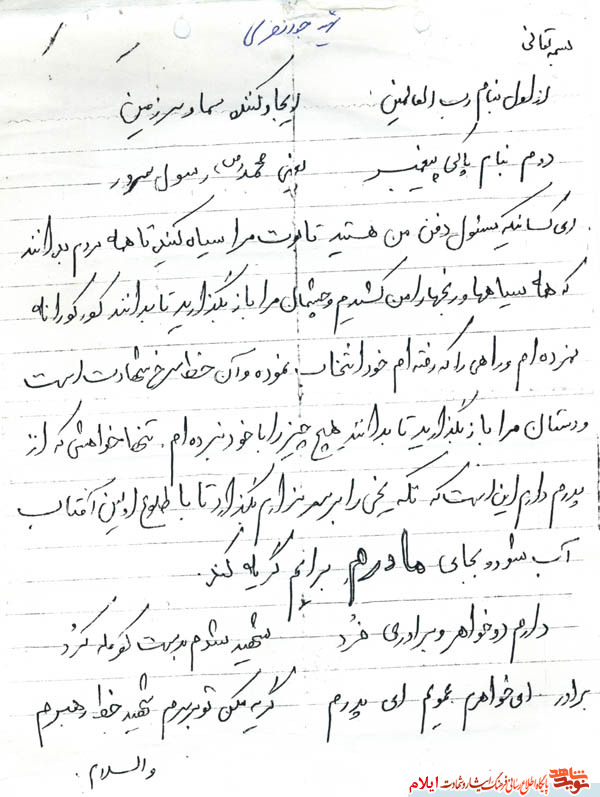 شهید جواد نصری
بسمه تعالی
از اول بنام رب العالمین ایجاد کننده سما و سرزمین
دوم بنام پاکی پیغمبر یعنی محمد (ص) رسول سرور
ای کسانیکه مسئول دفن من هستید تابوت مرا سیاه کنید تا همه مردم بدانند
که همه سیاهیها و رنجها را من کشیدم و چشمان مرا باز بگذارید تا بدانند کورکورانه
نمرده ام و راهی را که رفته ام خود انتخاب نموده و آن خط سرخ شهادت است
و دستان مرا باز بگذارید تا بدانند هیچ چیز را با خود نبرده ام. تنها خواهشی که از
پدرم دارم این است که تکه یخی را بر سر مزارم بگذارد تا با طلوع اولین آفتاب
آب شود و بجای مادرم برایم گریه کند.
دارم دو خواهر و برادری خرد شهید شدم بدست کومله کرد
برادر ای خواهرم عمویم ای پدرم گریه مکن تو بر سرم شهید خط رهبرم
والسلام.
نوید شاهد پایگاه اطلاع رسانی فرهنگ ایثار و شهادت ایلام